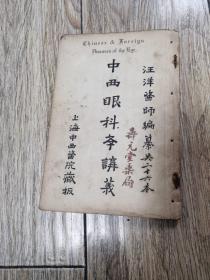 Chinese & Foreign
Diseases of the Eye.
汪洋醫師編纂共二十六本
壽元堂藥局
中西眼科學講義
上海中西醫院藏板